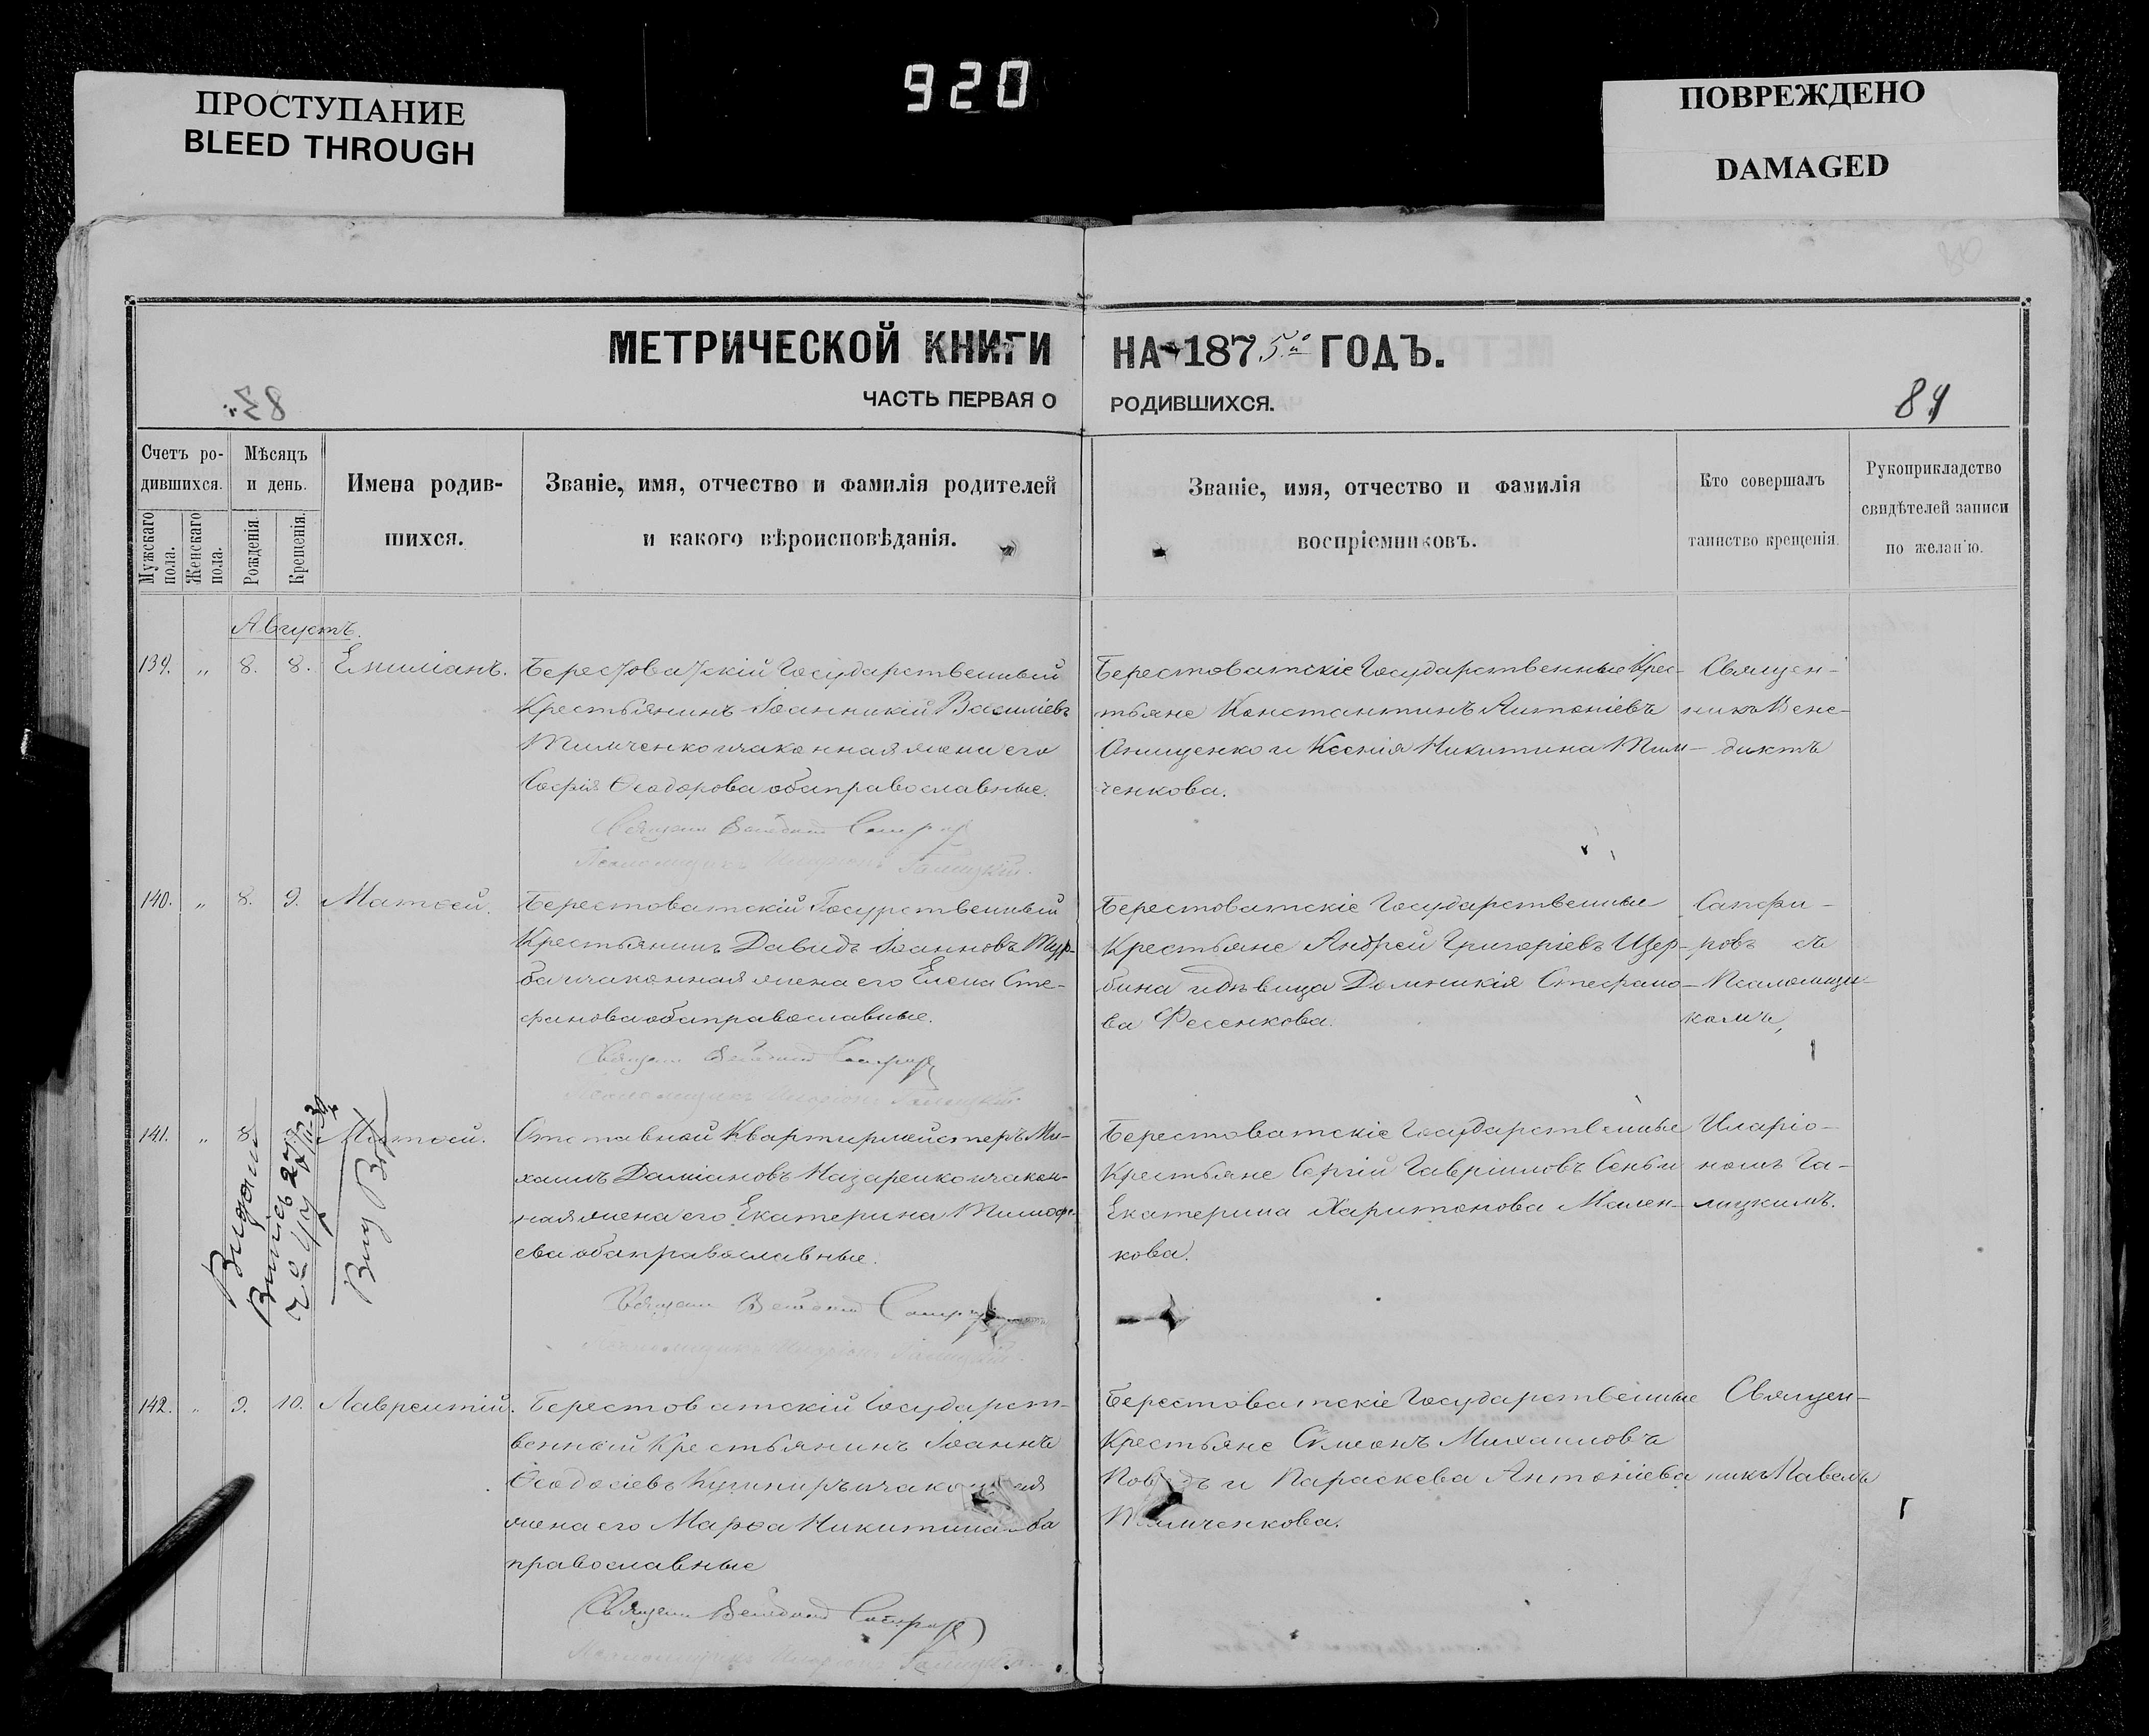 920
ПРОСТУПАНИЕ
BLEED THROUGH
ПОВРЕЖДЕНО
DAMAGED
МЕТРИЧЕСКОЙ КНИГИ НА 1875го ГОДЪ.
ЧАСТЬ ПЕРВАЯ О РОДИВШИХСЯ.
84
Счетъ ро-
дившихся.
Мужскаго пола.
Женскаго пола.
Мѣсяцъ
и день.
Рожденія.
Крещенія.
Имена родив-
шихся.
Званіе, имя, отчество и фамилія родителей
и какого вѣроисповѣданія.
Званіе, имя, отчество и фамилія
воспріемниковъ.
Кто совершалъ
таинство крещенія.
Рукоприкладство
свидѣтелей записи
по желанію.
Августъ.
139. „ 8. 8. Емиліанъ.
Берестоватскій Государственный
Крестьянинъ Іоанникій Василіевъ
Тимченко и законная жена его
Софія Ѳеодорова оба православные.
Священ Венедикт Сапфиров
Псаломщикъ Иларіонъ Галицкій.
Берестоватскіе Государственные Крес-
тьяне Константинъ Антоніевъ
Онищенко и Ксенія Никитина Тим-
ченкова.
Священ-
никъ Вене-
диктъ
140. „ 8. 9. Матѳей.
Берестоватскій Госурственный
Крестьянинъ Давидъ Іоанновъ Тур-
ба и законная жена его Елена Сте-
фанова оба православные.
Священ Венедикт Сапфиров
Псаломщикъ Иларіонъ Галицкій.
Берестоватскіе Государственные
Крестьяне Андрей Григоріевъ Щер-
бина и дѣвица Домникія Стефано-
ва Фесенкова.
Сапфи-
ровъ съ
Псаломщи-
комъ,
141. „ 8. Матѳей.
Отставной Квартирмейстеръ Ми-
хаилъ Даміановъ Назаренко и закон-
ная жена его Екатерина Тимоѳе-
ева оба православные.
Священ Венедикт Сапфиров
Псаломщикъ Иларіонъ Галицкій.
Берестоватскіе Государственные
Крестьяне Сергій Гавріиловъ
Екатерина Харитонова Мален-
кова.
Иларіо-
номъ Га-
лицкимъ.
142. „ 9. 10. Лаврентій.
Берестоватскій Государст-
венный Крестьянинъ Іоаннъ
Ѳеодосіевъ Кушниръ и законная
жена его Марѳа Никитина оба
православные
Священ Венедикт Сапфиров
Псаломщикъ Иларіонъ Галицкій.
Берестоватскіе Государственные
Крестьяне Сѵмеонъ Михаиловъ
и Параскева Антоніева
Тимченкова.
Священ-
никъ Павелъ